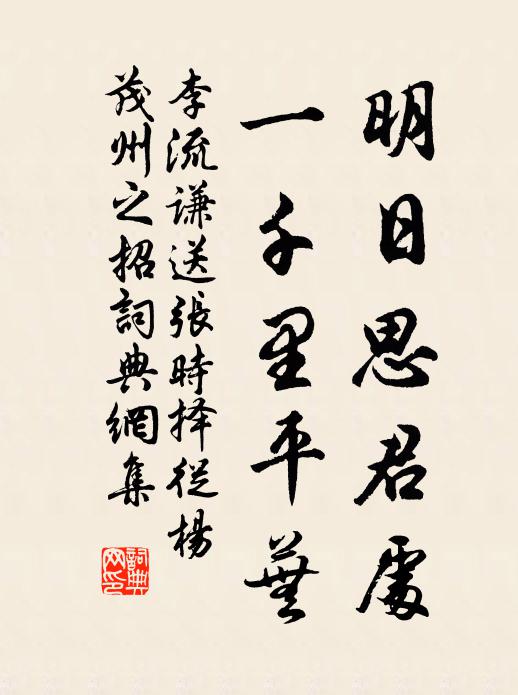 明日思君處
一千里平蕪
李流謙送張時择從楊
茂州之招詞典網集
詞典网印